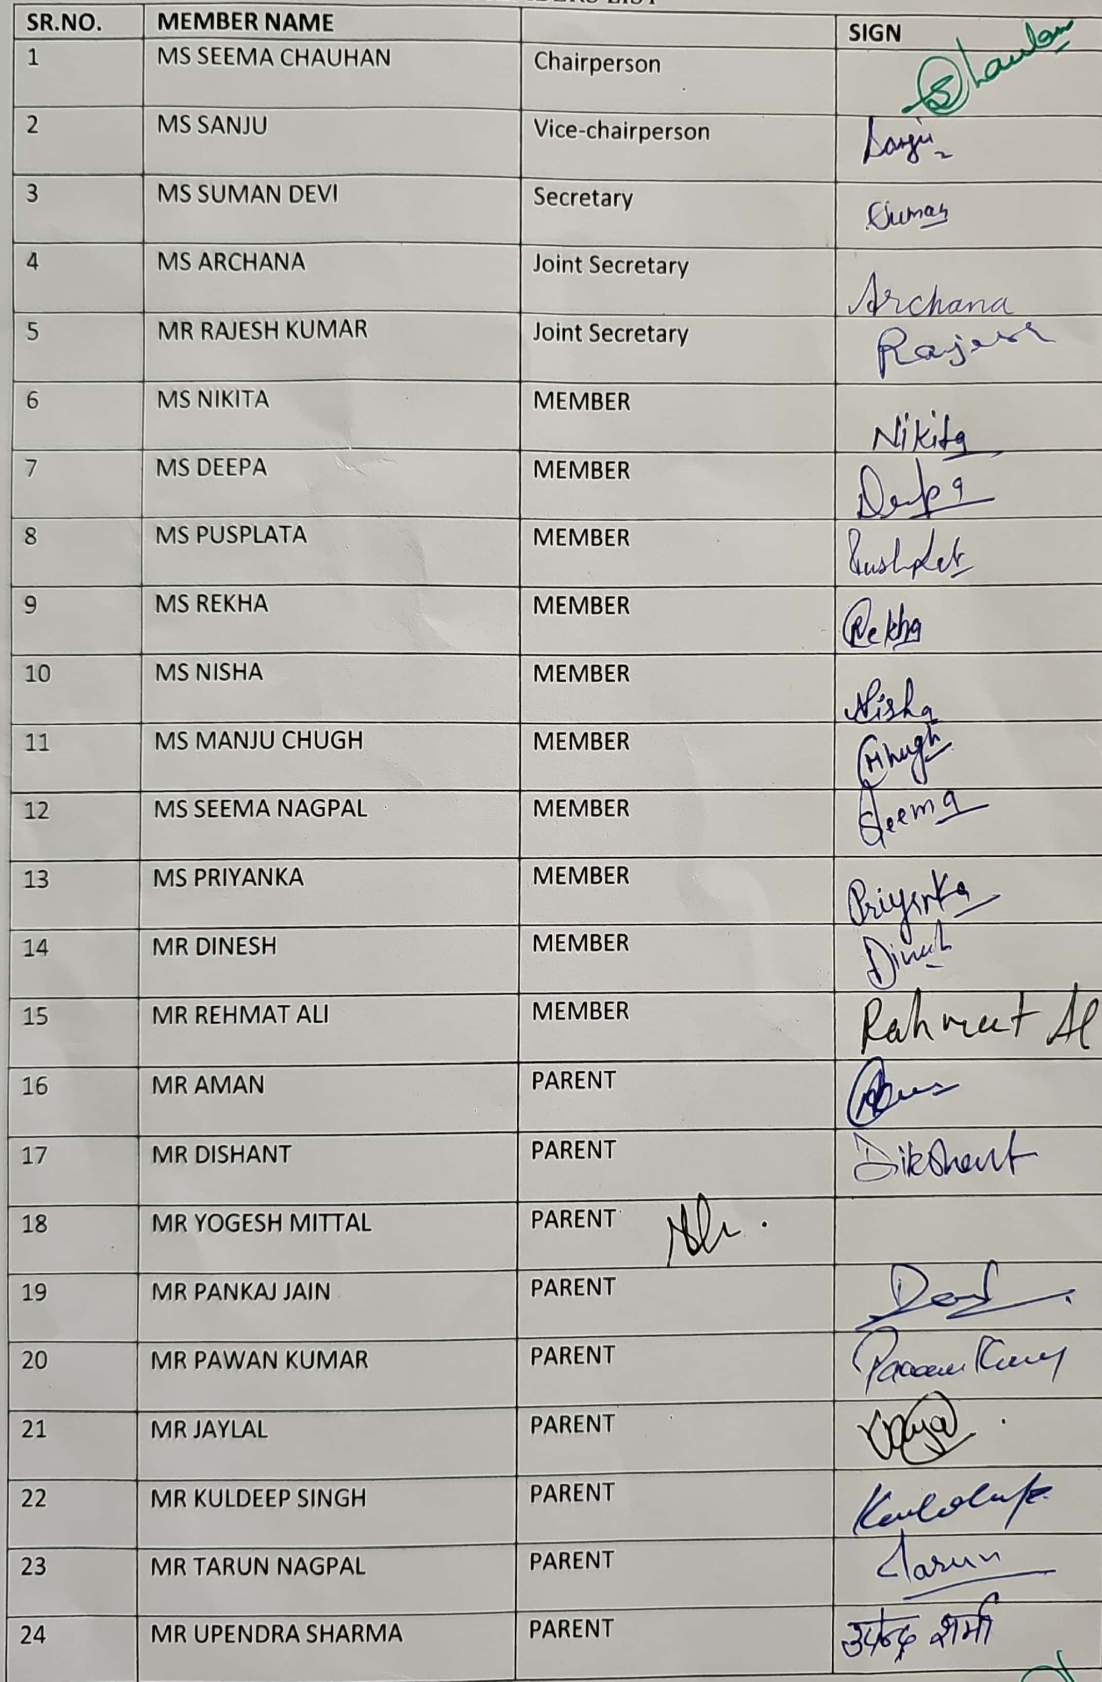 SR.NO. MEMBER NAME SIGN
1 MS SEEMA CHAUHAN Chairperson Chauhan
2 MS SANJU Vice-chairperson Sanju
3 MS SUMAN DEVI Secretary Suman
4 MS ARCHANA Joint Secretary Archana
5 MR RAJESH KUMAR Joint Secretary Rajesh
6 MS NIKITA MEMBER Nikita
7 MS DEEPA MEMBER Deepa
8 MS PUSPLATA MEMBER
9 MS REKHA MEMBER Rekha
10 MS NISHA MEMBER Nisha
11 MS MANJU CHUGH MEMBER
12 MS SEEMA NAGPAL MEMBER Seema
13 MS PRIYANKA MEMBER Priyanka
14 MR DINESH MEMBER Dinesh
15 MR REHMAT ALI MEMBER Rahmat Al
16 MR AMAN PARENT
17 MR DISHANT PARENT Dikshant
18 MR YOGESH MITTAL PARENT
19 MR PANKAJ JAIN PARENT
20 MR PAWAN KUMAR PARENT Pawan Kumar
21 MR JAYLAL PARENT
22 MR KULDEEP SINGH PARENT
23 MR TARUN NAGPAL PARENT Tarun
24 MR UPENDRA SHARMA PARENT उपेन्द्र शर्मा